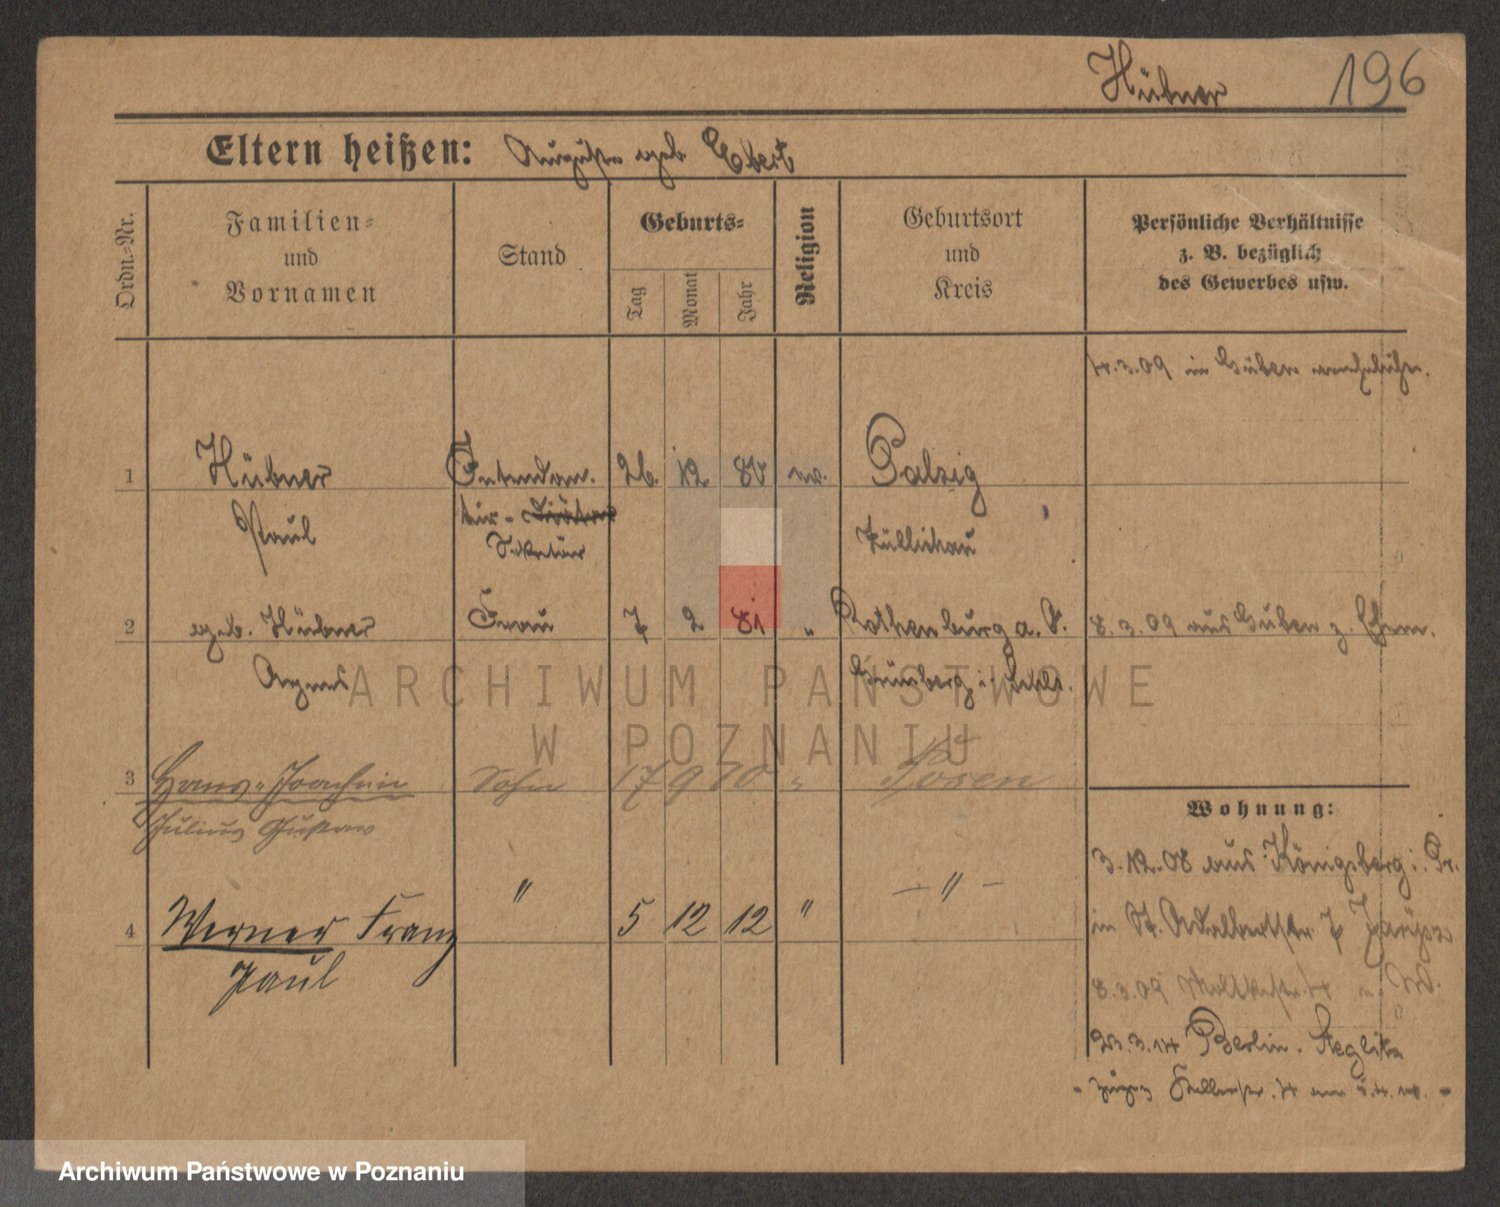 Hübner 196
Eltern heißen: Auguste geb. Ebert
Ordn.=Nr.
Familien=
und
Vornamen
Stand
Geburts=
Tag
Monat
Jahr
Religion
Geburtsort
und
Kreis
Persönliche Verhältnisse
z. B. bezüglich
des Gewerbes usw.
4.3.09 in Guben
1 Hübner Intendan. 26. 12 80 ev. Palzig
Paul tur-Diätar
Sekretär Züllichau
2 geb. Hübner Frau 7 2 81 " Rothenburg a. O. 8.3.09 aus Guben z. Ehem.
Agnes Grünberg i. Schls.
ARCHIWUM PAŃSTWOWE
W POZNANIU
3 Hans-Joachim Sohn 17 9 10 " Posen
Julius Gustav
Wohnung:
3.12.08 aus Königsberg i. Pr.
4 Werner Franz " 5 12 12 " — " —
in St. Adalbertstr. 7
Paul
8.3.09 Moltkestr. 4
23.3.14 Berlin-Steglitz
Archiwum Państwowe w Poznaniu